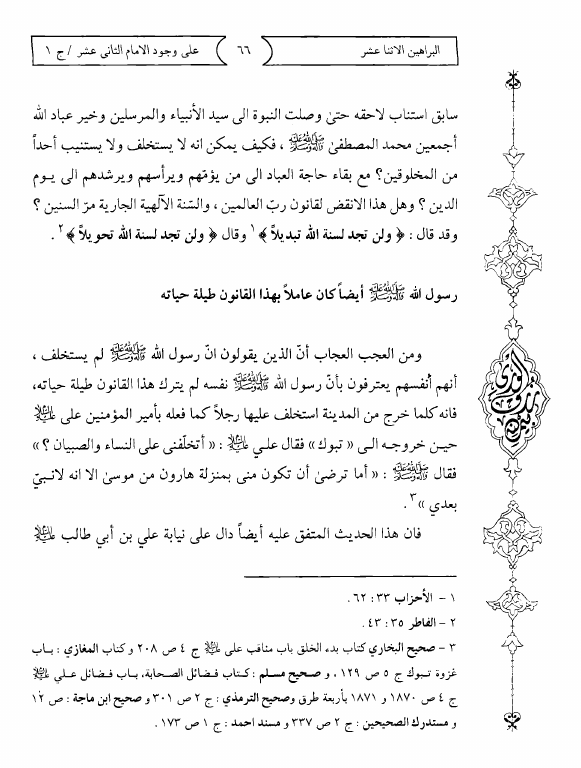 البراهين الاثنا عشر
٦٦
على وجود الامام الثانى عشر / ج ١
سابق استناب لاحقه حتىٰ وصلت النبوة الى سيد الأنبياء والمرسلين وخير عباد الله
أجمعين محمد المصطفىٰ ﷺ ، فكيف يمكن انه لا يستخلف ولا يستنيب أحداً
من المخلوقين؟ مع بقاء حاجة العباد الى من يؤمّهم ويرأسهم ويرشدهم الى يـوم
الدين ؟ وهل هذا الانقض لقانون ربّ العالمين ، والسّنة الآلهية الجارية مرّ السنين ؟
وقد قال : ﴿ ولن تجد لسنة الله تبديلاً ﴾١ وقال ﴿ ولن تجد لسنة الله تحويلاً ﴾٢ .
رسول الله ﷺ أيضاً كان عاملاً بهذا القانون طيلة حياته
ومن العجب العجاب أنّ الذين يقولون انّ رسول الله ﷺ لم يستخلف ،
أنهم أنفسهم يعترفون بأنّ رسول الله ﷺ نفسه لم يترك هذا القانون طيلة حياته،
فانه كلما خرج من المدينة استخلف عليها رجلاً كما فعله بأمير المؤمنين على عليه السلام
حيـن خروجـه الـى « تبوك » فقال علـي عليه السلام : « أتخلّفنى على النساء والصبيان ؟ »
فقال ﷺ : « أما ترضىٰ أن تكون منى بمنزلة هارون من موسىٰ الا انه لانـبيّ
بعدي »٣.
فان هذا الحديث المتفق عليه أيضاً دال على نيابة علي بن أبي طالب عليه السلام
١ - الأحزاب ٣٣ : ٦٢ .
٢ - الفاطر ٣٥ : ٤٣ .
٣ - صحيح البخاري كتاب بدء الخلق باب مناقب على عليه السلام ج ٤ ص ٢٠٨ و كتاب المغازي : بـاب
غزوة تـبوك ج ٥ ص ١٢٩ ، و صـحيح مسلم : كـتاب فـضائل الصـحابة، بـاب فـضائل عـلي عليه السلام
ج ٤ ص ١٨٧٠ و ١٨٧١ بأربعة طرق وصحيح الترمذي : ج ٢ ص ٣٠١ و صحيح ابن ماجة : ص ١٢
و مستدرك الصحيحين : ج ٢ ص ٣٣٧ و مسند احمد : ج ١ ص ١٧٣ .